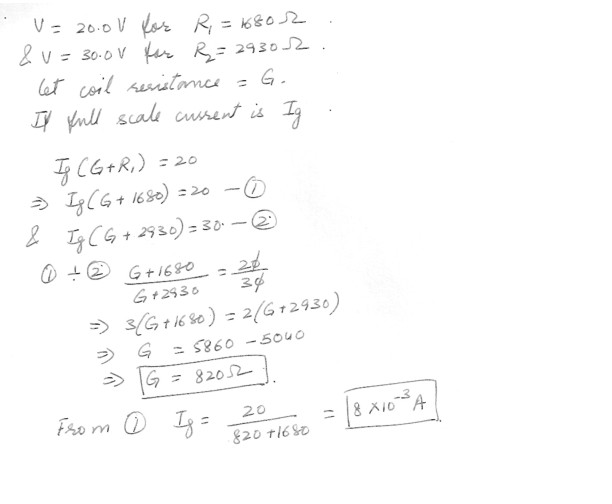 V = 20.0 V for R₁ = 1680 Ω .
& V = 30.0 V for R₂ = 2930 Ω .
let coil resistance = G.
If full scale current is Ig .
Ig (G+R₁) = 20
⇒ Ig (G + 1680) = 20 — ①
& Ig (G + 2930) = 30. — ②
① ÷ ② (G+1680)/(G+2930) = 20/30
⇒ 3(G+1680) = 2(G+2930)
⇒ G = 5860 – 5040
⇒ G = 820 Ω .
From ① Ig = 20/(820+1680) = 8 × 10⁻³ A